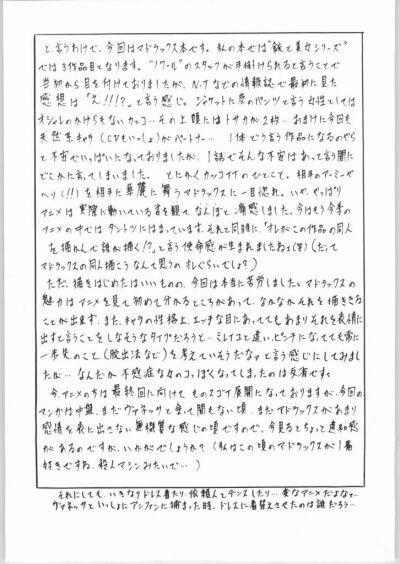 と、言うわけで、今回はマドラックス本です。私の本では"銃と美女シリーズ"
では3作品目となります。"ノワール"のスタッフが手掛けられると言うことで
当初から目を付けておりましたが、N.Tなどの情報誌で最初に見た
感想は「え!!!?」と言う感じ。ジャケットに皮のパンツと言う女性としては
オシャレのかけらもないカッコ…その上頭にはトサカが2枚…おまけに今回も
天然系キャラ(CVもいっしょ)がパートナー…  1体どう言う作品になるのやら
と不安でいっぱいになっておりましたが、1話でそんな不安はあっと言う間に
どこかに言ってしまいました。 とにかくカッコイイのひとこと。相手のアーミーや
ヘリ(!!)を相手に華麗に舞うマドラックスに一目惚れ。いや、やっぱり
アニメは実際に動いている姿を観てなんぼと痛感しました。今はもう今季の
アニメの中ではダントツにはまっています。それと同時に、「オレがこの作品の同人
を描かんで誰が描く!?」と言う使命感が生まれましたねェ(笑)(だって
マドラックスの同人描こうなんて思うのオレぐらいでしょ?)
ただ、描きはじめたはいいものの、今回は本当に苦労しました。マドラックスの
魅力はアニメを見て初めて分かるところがあって、なかなかそれを描ききる
ことが出来ず、また、キャラの性格上、エッチな目にあっててもあまりそれを表情に
出すと言うことをしなそうなタイプだろうと…ミレイユと違い、ピンチになってても常に
一歩先のこと(脱出法など)を考えていそうだなァと言う感じにしてみまし
たが…なんだか不感症な女のコっぽくなってしまったのは反省です。
今、アニメの方は最終回に向けてものスゴイ展開になっておりますが、今回の
マンガは中盤、まだヴァネッサと会って間もない頃、まだマドラックスがあまり
感情を表に出さない無機質な感じの頃ですので、今見るとちょっと違和感
があるのですが、いかがでしょうか?(私はこの頃のマドラックスが1番
好きですね。殺人マシンみたいで…)
それにしても、いきなりドレス着たり、依頼人とダンスしたり…変なアニメだよなァ…
ヴァネッサといっしょにアンファンに捕まった時、ドレスに着替えさせたのは誰だろう…